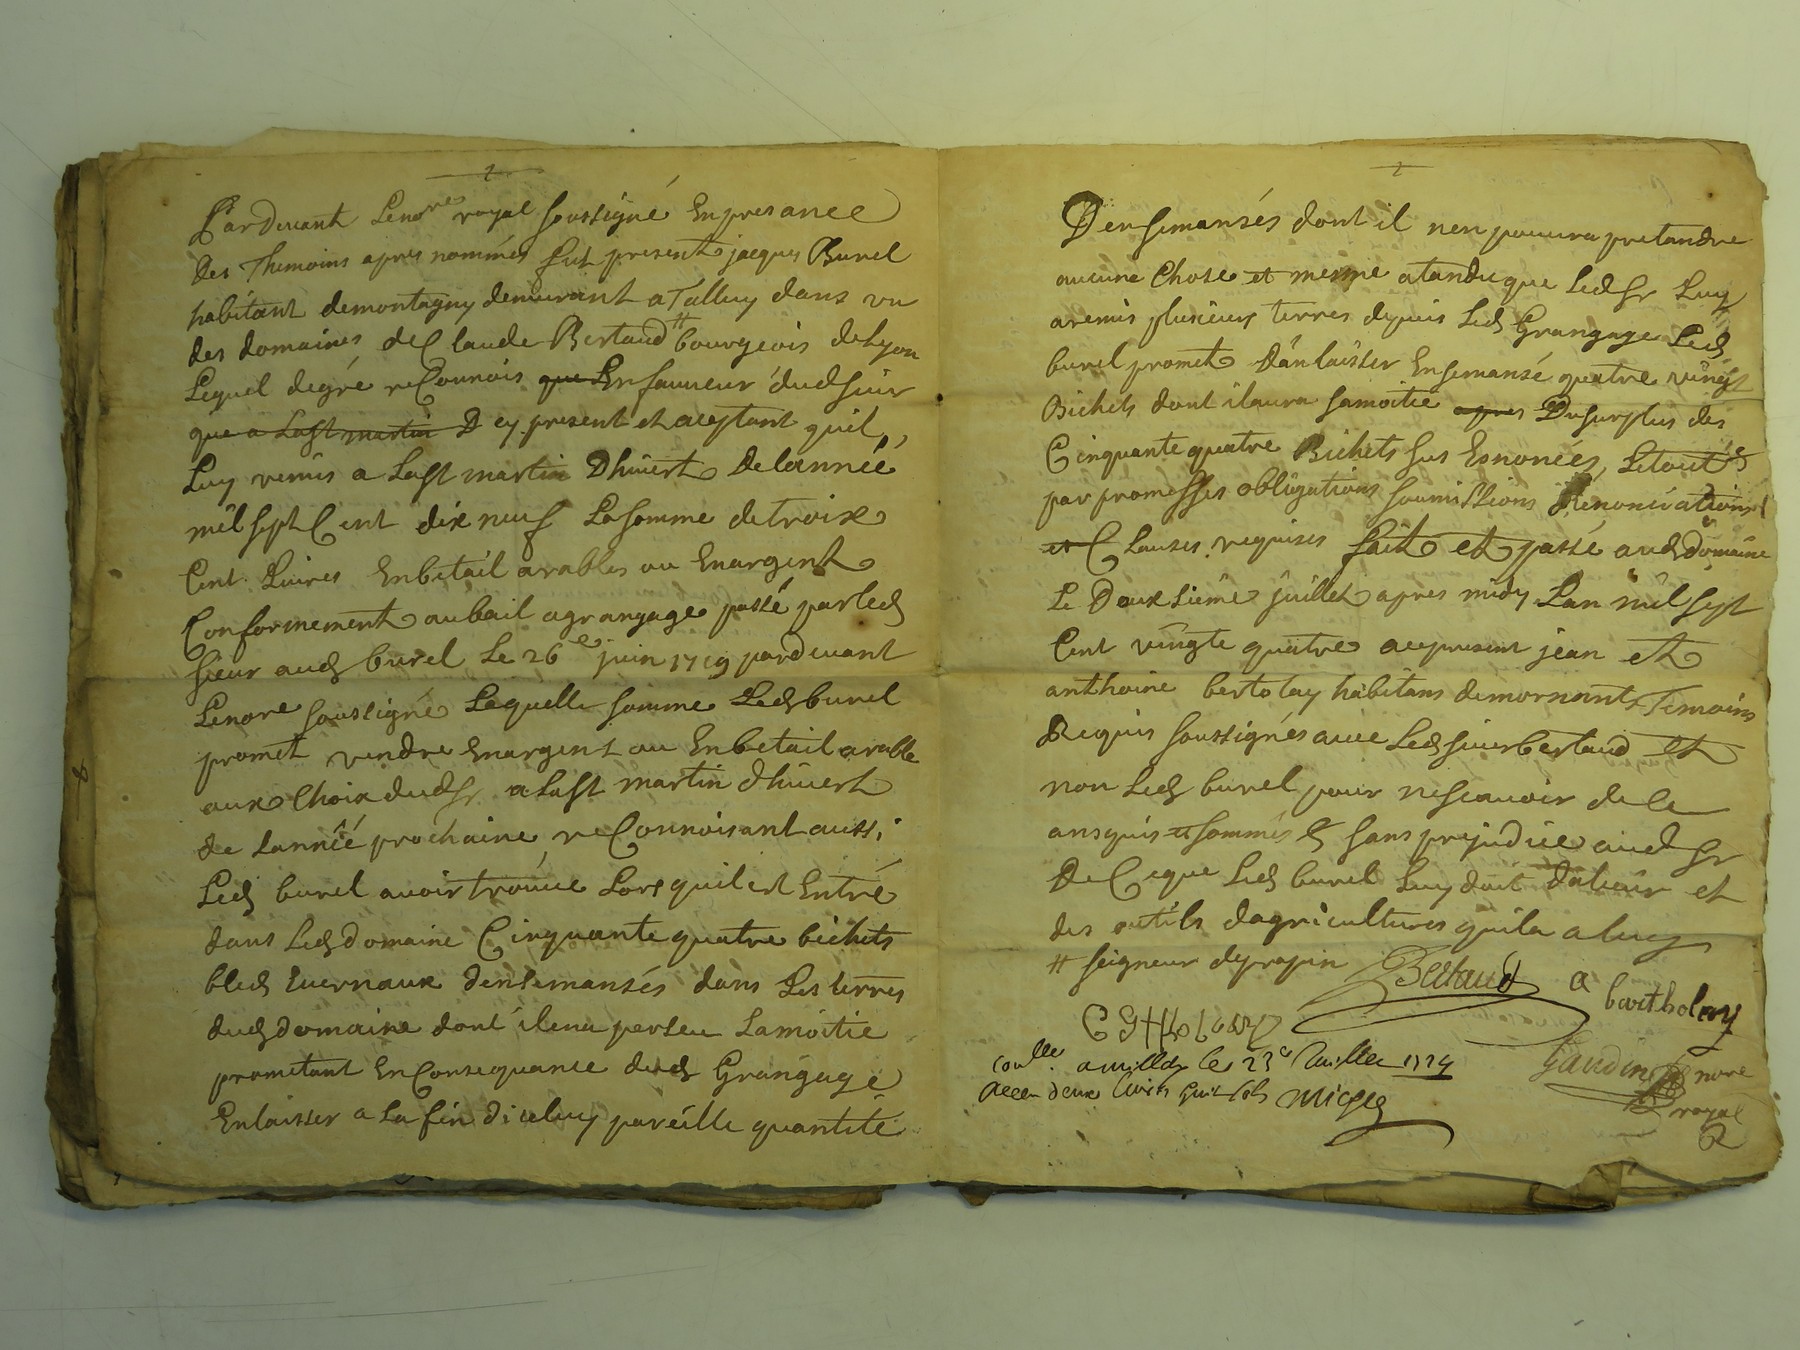 2
Pardevant Lenore royal soussigné En presance
des Themoins apres nommés fut present jacques Burel
habitant demontagny demeurant a Talluy dans un
des domaines de Claude Bertaud # bourgeois de Lyon
Lequel degré reConnois que En faueueur dudsieur
que a La st martin D cy present et aceptant quil
Luy remis a La st martin Dhiuert De lannéé
mil sept Cent dix neuf La somme de troix
Cent Liures En betail arables ou En argent
Conformement aubail agrangage passé par led
sieur aud burel Le 26e juin 1719 pardeuant
Lenore soussigné Laquelle somme Led burel
promet rendre En argent ou En betail arable
aux Choix dud sr a La st martin dhiuert
de lannéé prochaine reConnoisant aussi
Led burel auoir trouué Lors quil est Entré
dans Led domaine Cinquante quatre bichets
bled Euernaux densemansés dans Les terres
dud domaine dont il ena perseu La moitié
prometant En Consequance dud Grangage
En laisser a La fin diceluy pareille quantité
2
Densemansés dont il nen pouura pretandre
aucune Chose et mesme atandu que Led sr Luy
aremis plusieurs terres depuis Led Grangage Led
burel promet Dan laisser Ensemansé quatre vingt
Bichets dont il aura sa moitié apres Du surplus des
Cinquante quatre Bichets sus Enoncés, Le tout
par promesses obligations soumissions Renonciations
et Clauses requises fait et passé aud domaine
Le Deuxsieme juillet apres midy Lan mil sept
Cent vingte quatre acepresent jean et
anthoine bertolay habitans demornant Temoins
Requis soussignés auec Led sieur bertaud et
non Led burel pour ne scauoir de Ce
anquis et sommés & sans prejudice aud sr
De Ce que Led burel Luy doit dalieur et
des outils dagricultures quil a a luy
# seigneur depragin Bertaud a bartholay
Gaudin nore
royal
le 23e Juillet 1724
deux liures